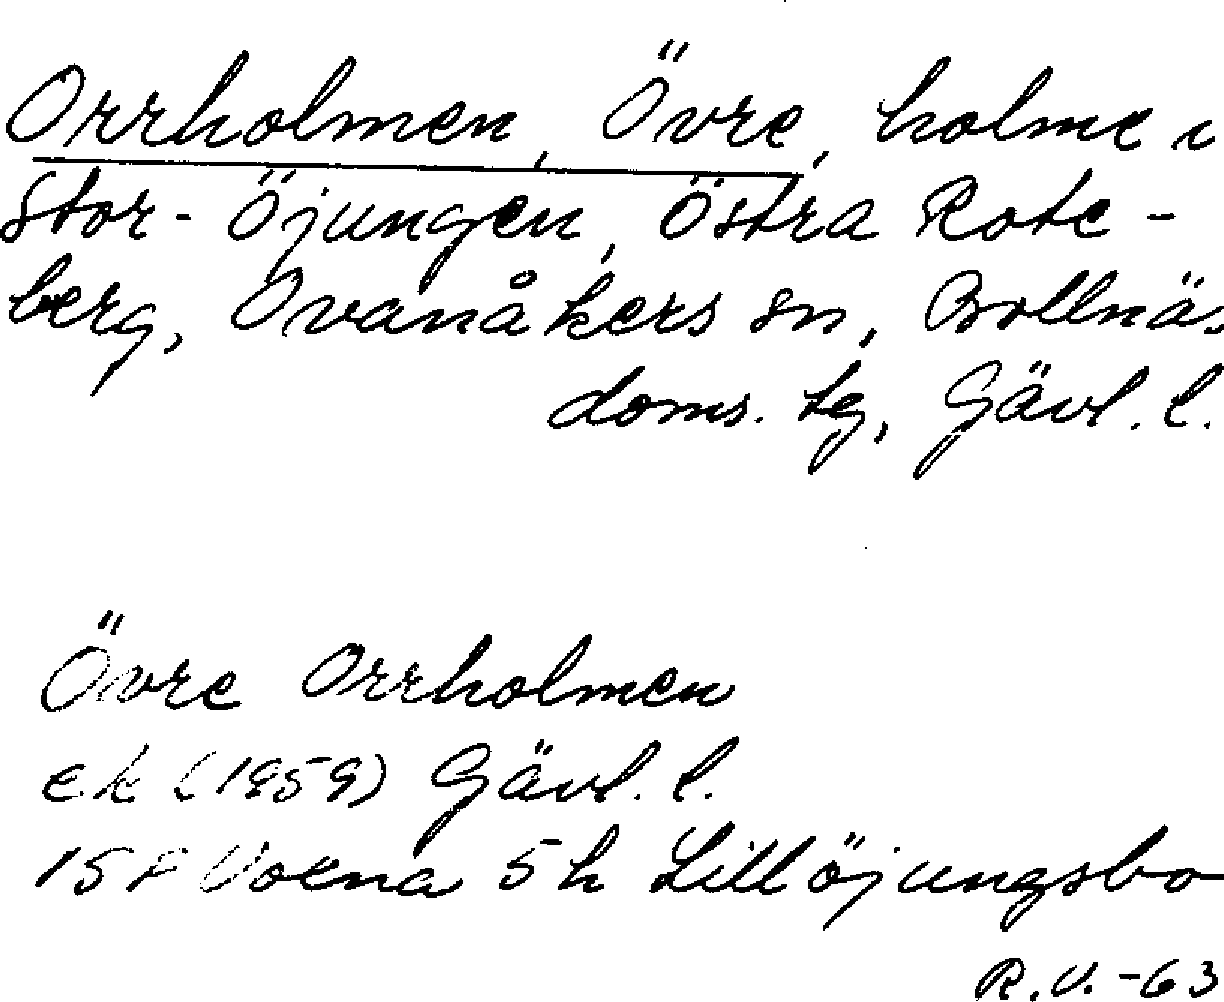 Orrholmen, Övre, holme i
Stor-Öjungen, Östra Rote-
berg, Ovanåkers sn, Bollnäs
doms. tg, Gävl. l.
Övre Orrholmen
ek (1959) Gävl. l.
15F Voxna 5h Lillöjungsbo
R.V. -63